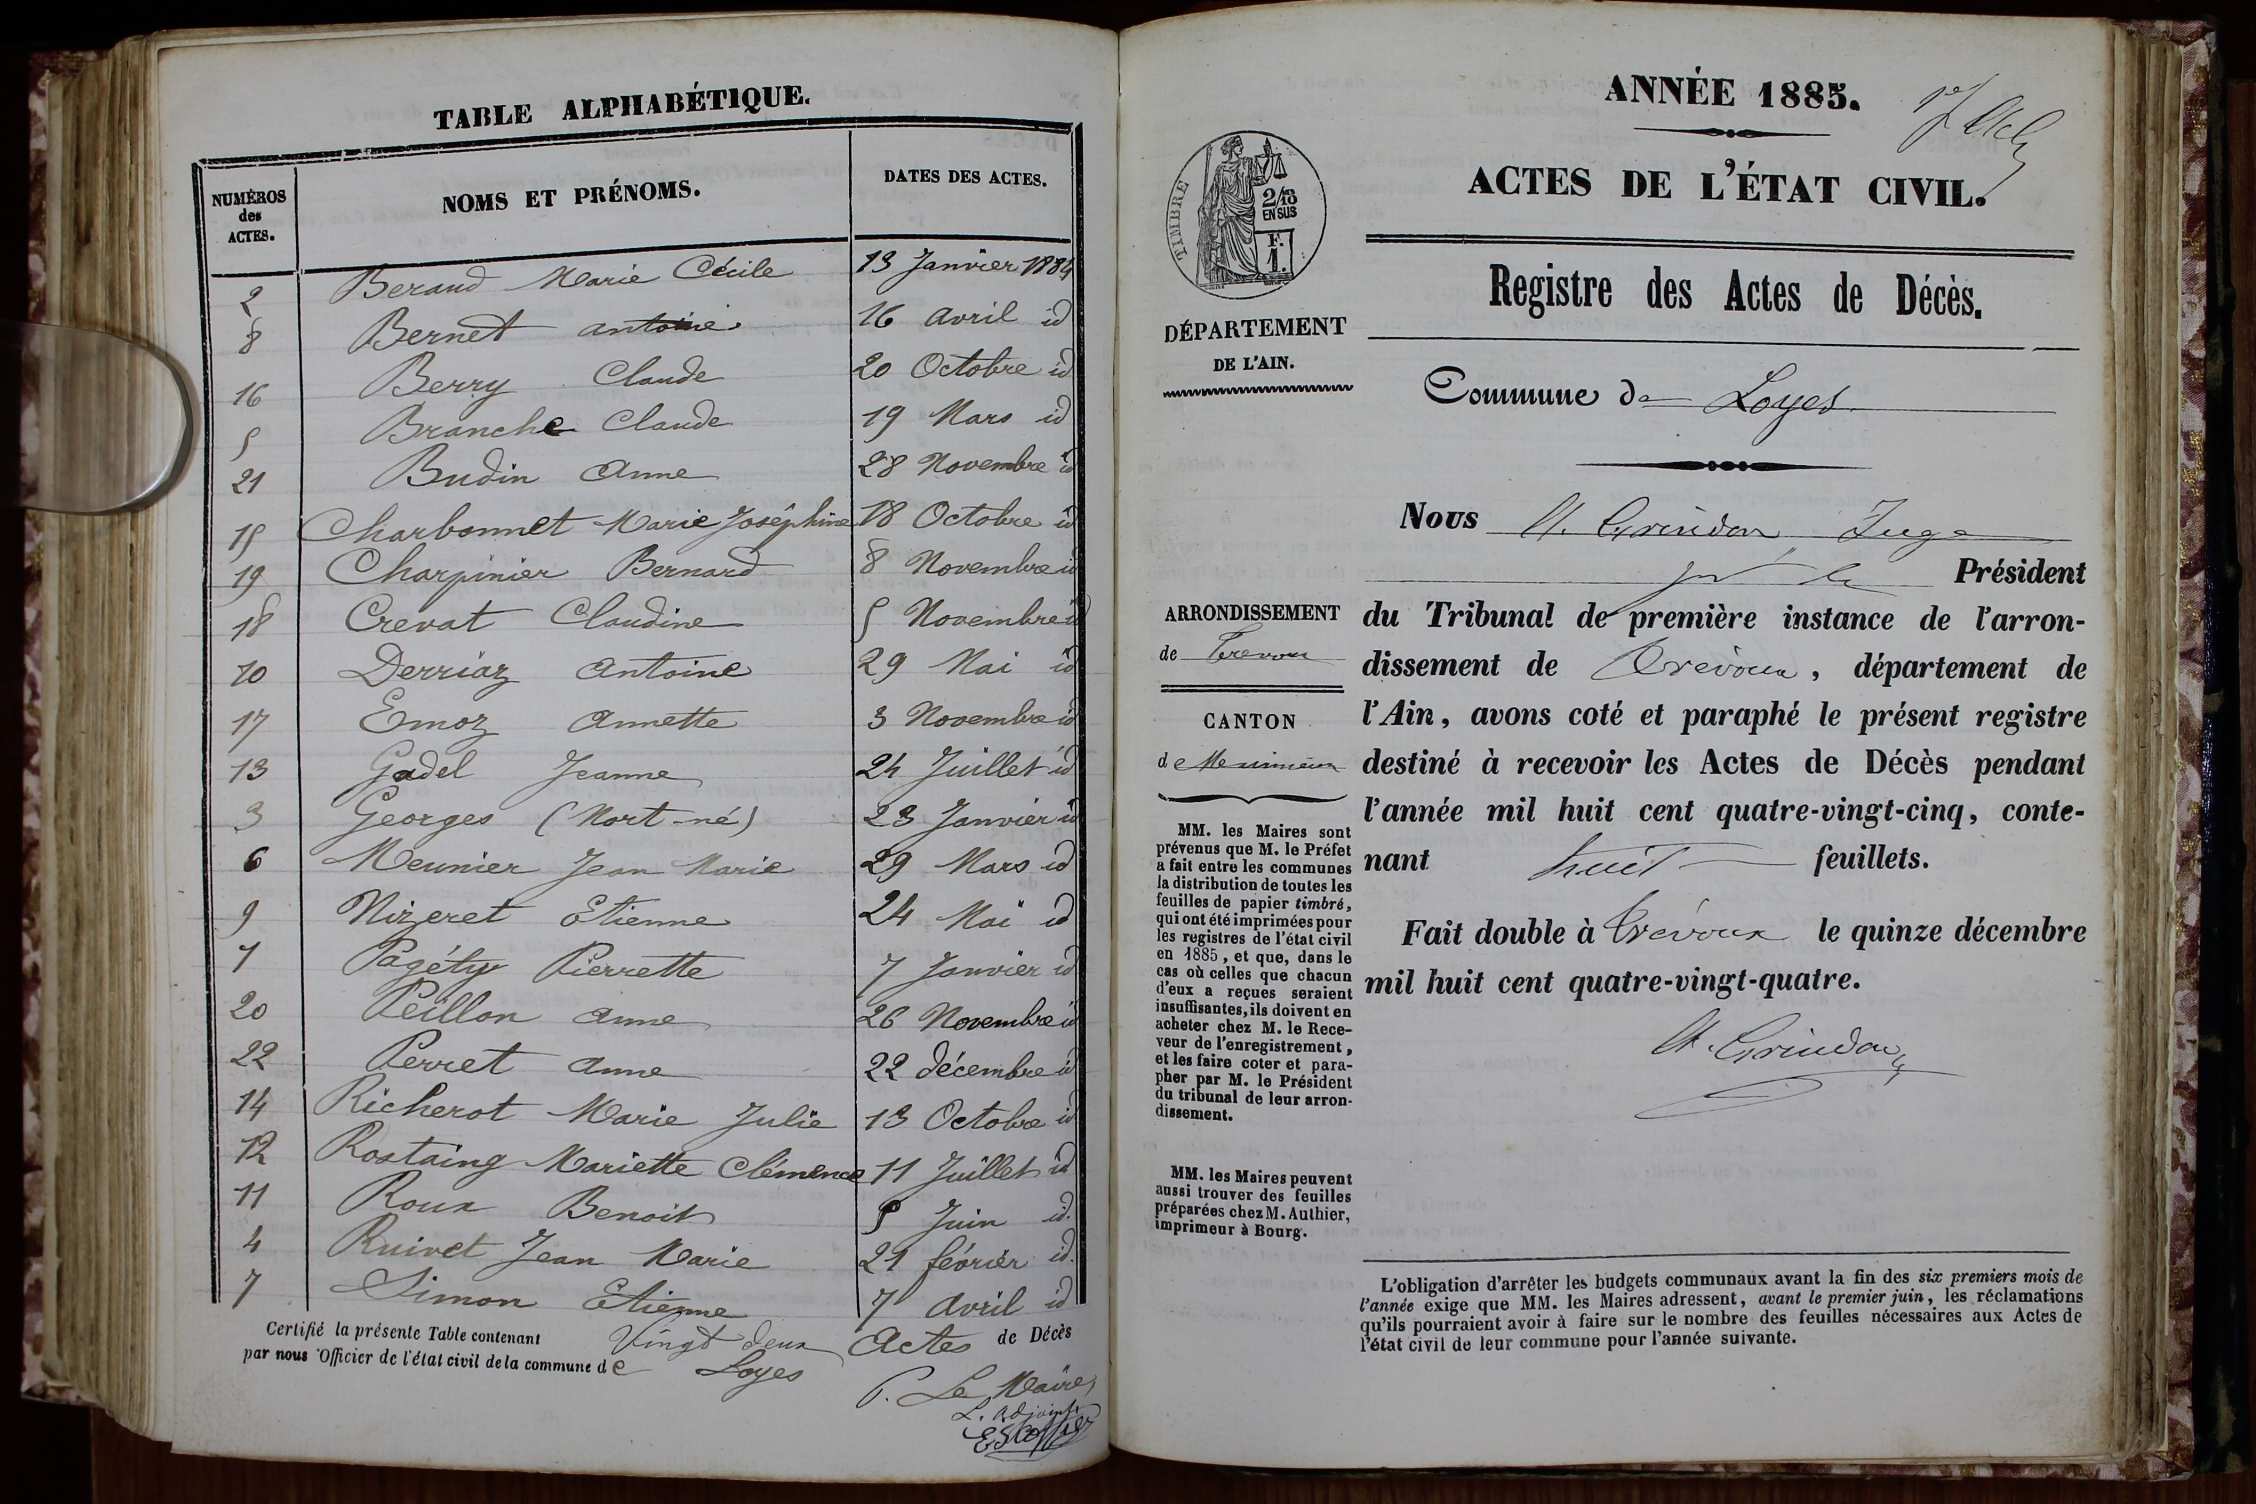 TABLE ALPHABÉTIQUE.
NUMÉROS des ACTES. NOMS ET PRÉNOMS. DATES DES ACTES.
2 Beraud Marie Cécile 13 Janvier 1884
8 Bernet antoine 16 avril id
16 Berry Claude 20 Octobre id
5 Branche Claude 19 Mars id
21 Budin Anne 28 Novembre id
15 Charbonnet Marie Joséphine 18 Octobre id
19 Charpinier Bernard 8 Novembre id
18 Crevat Claudine 5 Novembre id
10 Derriaz Antoine 29 Mai id
17 Emoz Annette 3 Novembre id
13 Gadel Jeanne 24 Juillet id
3 Georges (Mort-né) 23 Janvier id
6 Meunier Jean Marie 29 Mars id
9 Nizeret Etienne 24 Mai id
1 Pagéty Pierrette 7 Janvier id
20 Peillon Anne 26 Novembre id
22 Perret Anne 22 décembre id
14 Richerot Marie Julie 13 Octobre id
12 Rostaing Mariette Clémence 11 Juillet id
11 Roux Benoit 5 Juin id.
4 Ruivet Jean Marie 21 février id.
7 Simon Etienne 7 avril id
Certifié la présente Table contenant Vingt deux Actes de Décès
par nous Officier de l'état civil de la commune de Loyes
P. Le Maire
L. adjoint
ANNÉE 1885.
ACTES DE L'ÉTAT CIVIL.
TIMBRE
2/10
EN SUS
F.
1.
Registre des Actes de Décès.
DÉPARTEMENT
DE L'AIN.
Commune de Loyes
Nous A. Grindon, Juge
Président
du Tribunal de première instance de l'arron-
dissement de Trévoux, département de
l'Ain, avons coté et paraphé le présent registre
destiné à recevoir les Actes de Décès pendant
l'année mil huit cent quatre-vingt-cinq, conte-
nant huit feuillets.
Fait double à Trévoux le quinze décembre
mil huit cent quatre-vingt-quatre.
A. Grindon
ARRONDISSEMENT
de Trévoux
CANTON
de Meximieux
MM. les Maires sont
prévenus que M. le Préfet
a fait entre les communes
la distribution de toutes les
feuilles de papier timbré,
qui ont été imprimées pour
les registres de l'état civil
en 1885, et que, dans le
cas où celles que chacun
d'eux a reçues seraient
insuffisantes, ils doivent en
acheter chez M. le Rece-
veur de l'enregistrement,
et les faire coter et para-
pher par M. le Président
du tribunal de leur arron-
dissement.
MM. les Maires peuvent
aussi trouver des feuilles
préparées chez M. Authier,
imprimeur à Bourg.
L'obligation d'arrêter les budgets communaux avant la fin des six premiers mois de
l'année exige que MM. les Maires adressent, avant le premier juin, les réclamations
qu'ils pourraient avoir à faire sur le nombre des feuilles nécessaires aux Actes de
l'état civil de leur commune pour l'année suivante.